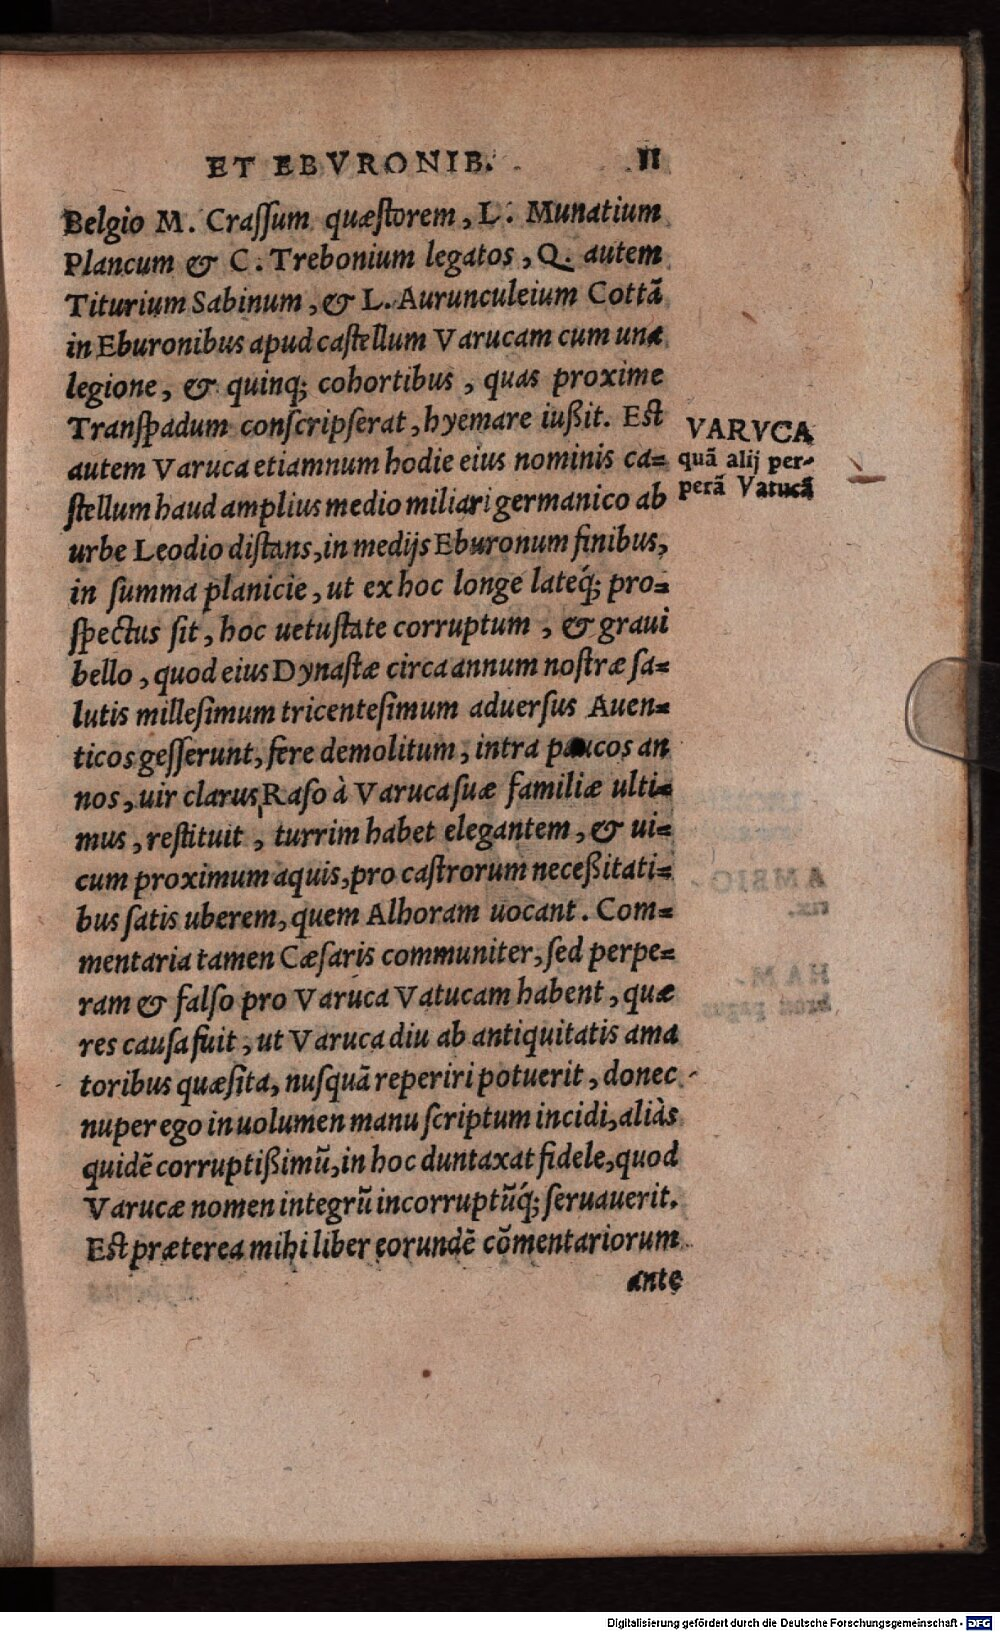 ET EBVRONIB. 11
Belgio M. Crassum quæstorem, L. Munatium
Plancum & C. Trebonium legatos, Q. autem
Titurium Sabinum, & L. Aurunculeium Cottã
in Eburonibus apud castellum Varucam cum una
legione, & quinq; cohortibus, quas proxime
Transpadum conscripserat, hyemare iußit. Est
autem Varuca etiamnum hodie eius nominis ca=
stellum haud amplius medio miliari germanico ab
urbe Leodio distans, in medijs Eburonum finibus,
in summa planicie, ut ex hoc longe lateq́; pro=
spectus sit, hoc uetustate corruptum, & graui
bello, quod eius Dynastæ circa annum nostræ sa=
lutis millesimum tricentesimum aduersus Auen=
ticos gesserunt, fere demolitum, intra paucos an
nos, uir clarus Raso à Varuca suæ familiæ ulti=
mus, restituit, turrim habet elegantem, & ui=
cum proximum aquis, pro castrorum neceßitati=
bus satis uberem, quem Alhoram uocant. Com=
mentaria tamen Cæsaris communiter, sed perpe=
ram & falso pro Varuca Vatucam habent, quæ
res causa fuit, ut Varuca diu ab antiquitatis ama
toribus quæsita, nusquã reperiri potuerit, donec
nuper ego in uolumen manu scriptum incidi, aliàs
quidẽ corruptißimũ, in hoc duntaxat fidele, quod
Varucæ nomen integrũ incorruptũq́; seruauerit.
Est præterea mihi liber eorundẽ cõmentariorum
ante
VARVCA
quã alij per-
perã Vatucã
Digitalisierung gefördert durch die Deutsche Forschungsgemeinschaft - DFG